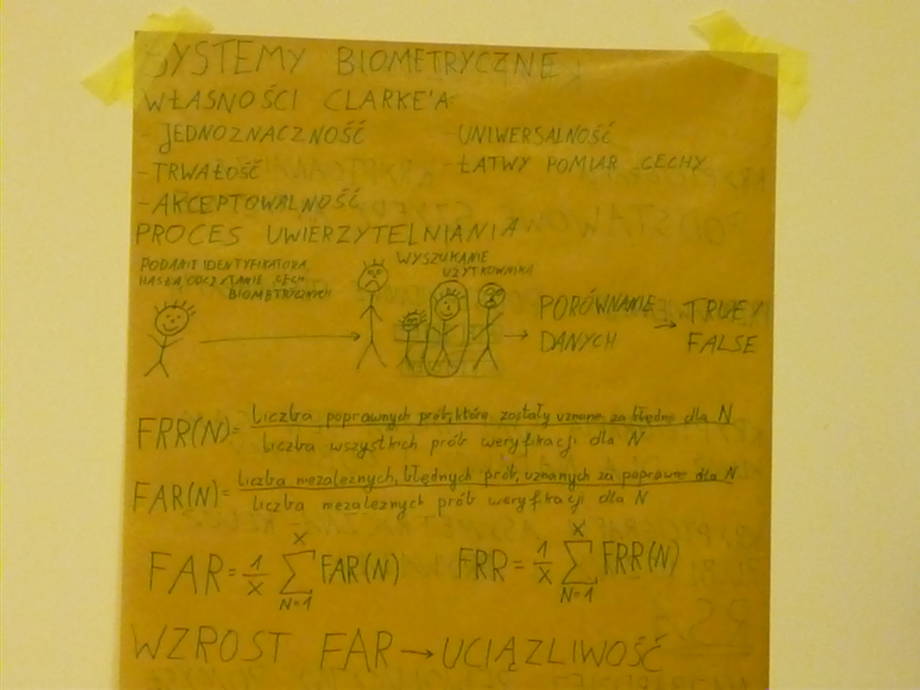 SYSTEMY BIOMETRYCZNE
WŁASNOŚCI CLARKE'A:
- JEDNOZNACZNOŚĆ
- TRWAŁOŚĆ
- AKCEPTOWALNOŚĆ
- UNIWERSALNOŚĆ
- ŁATWY POMIAR CECHY
PROCES UWIERZYTELNIANIA
PODANIE IDENTYFIKATORA,
HASŁA, ODCZYTANIE CECH
BIOMETRYCZNYCH
WYSZUKANIE
UŻYTKOWNIKA
PORÓWNANIE
DANYCH
TRUE/
FALSE
FRR(N)= Liczba poprawnych prób, które zostały uznane za błędne dla N
Liczba wszystkich prób weryfikacji dla N
FAR(N)= Liczba niezależnych, błędnych prób, uznanych za poprawne dla N
Liczba niezależnych prób weryfikacji dla N
FAR = 1/X X∑N=1 FAR(N)
FRR = 1/X X∑N=1 FRR(N)
WZROST FAR → UCIĄŻLIWOŚĆ